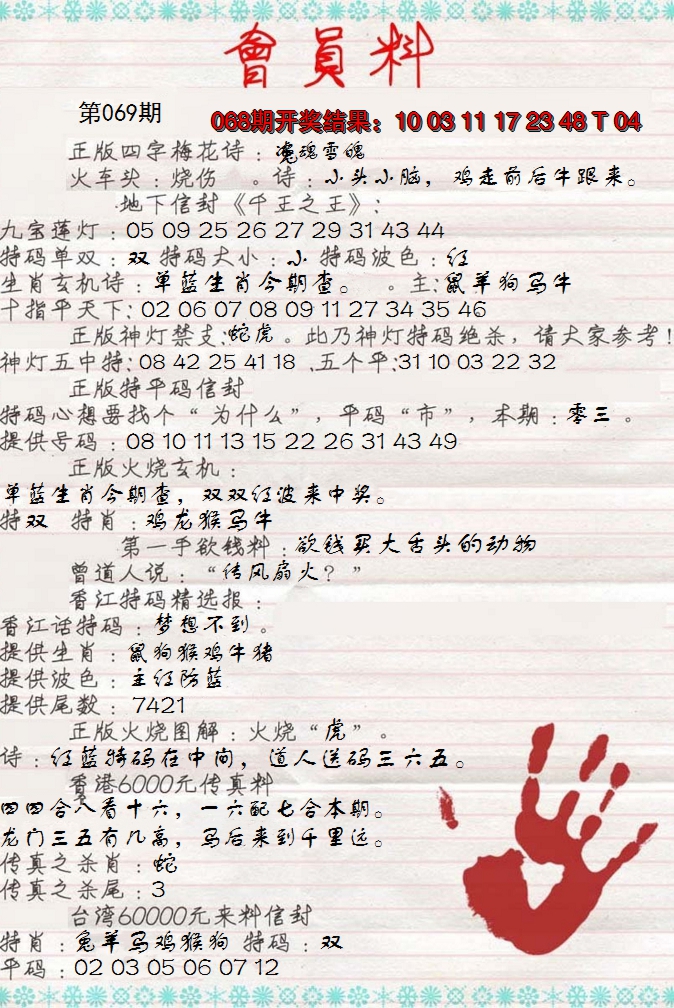 會員料
第069期
068期开奖结果：10 03 11 17 23 48 T 04
正版四字梅花诗：魂魄雪魄
火车头：烧伤 。诗：小头小脑，鸡走前后牛跟来。
地下信封《千王之王》：
九宝莲灯：05 09 25 26 27 29 31 43 44
特码单双：双 特码大小：小 特码波色：红
生肖玄机诗：单蓝生肖今期查。 。主：鼠羊狗马牛
十指平天下：02 06 07 08 09 11 27 34 35 46
正版神灯禁支：蛇虎。此乃神灯特码绝杀，请大家参考！
神灯五中特：08 42 25 41 18 、五个平：31 10 03 22 32
正版特平码信封
特码心想要找个“为什么”，平码“市”，本期：零三 。
提供号码：08 10 11 13 15 22 26 31 43 49
正版火烧玄机：
单蓝生肖今期查，双双红波来中奖。
特双 特肖：鸡龙猴马牛
第一手欲钱料：欲钱买大舌头的动物
曾道人说：“传风扇火？”
香江特码精选报：
香江话特码：梦想不到。
提供生肖：鼠狗猴鸡牛猪
提供波色：主红防蓝
提供尾数：7421
正版火烧图解：火烧“虎”。
诗：红蓝特码在中间，道人送码三六五。
香港6000元传真料
四四合八看十六，一六配七合本期。
龙门三五有几高，马后来到千里远。
传真之杀肖：蛇
传真之杀尾：3
台湾60000元来料信封
特肖：兔羊马鸡猴狗 特码：双
平码：02 03 05 06 07 12